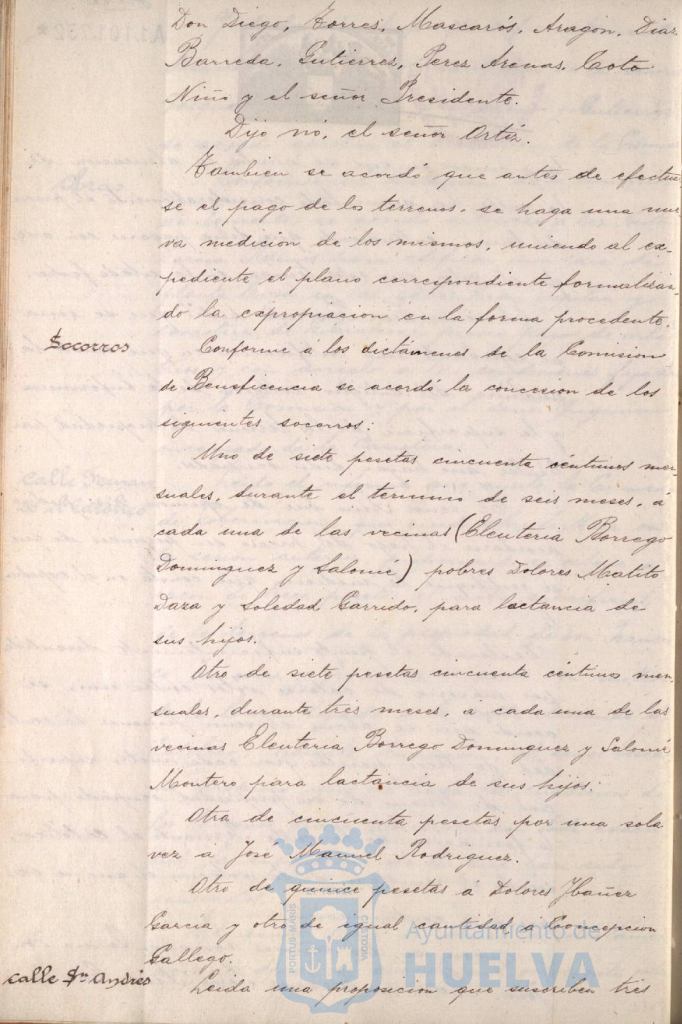 Don Diego, Torres, Mascarós, Aragon, Diaz
Barreda, Gutierrez, Perez Arenas, Coto
Niño y el señor Presidente.
Dijo nó, el señor Ortíz.
Tambien se acordó que antes de efectuar
se el pago de los terrenos, se haga una nue
va medicion de los mismos, uniendo al ex-
pediente el plano correspondiente formalizán-
do la expropiacion en la forma procedente.
Socorros
Conforme á los dictámenes de la Comision
de Beneficencia se acordó la concesion de los
siguientes socorros:
Uno de siete pesetas cincuenta céntimos men-
suales, durante el término de seis meses, á
cada una de las vecinas (Eleuteria Borrego
Dominguez y Salomé) pobres Dolores Matito
Daza y Soledad Garrido, para lactancia de
sus hijos.
Otro de siete pesetas cincuenta céntimos men-
suales, durante tres meses, á cada una de las
vecinas Eleuteria Borrego Dominguez y Salomé
Montero para lactancia de sus hijos.
Otra de cincuenta pesetas por una sola
vez á José Manuel Rodriguez.
Otro de quince pesetas á Dolores Ybañez
Garcia y otro de igual cantidad á Concepcion
Gallego.
calle Sn Andrés
Leida una proposicion que suscriben tres
PORTUS MARIS
CUSTODIA
Ayuntamiento de
HUELVA